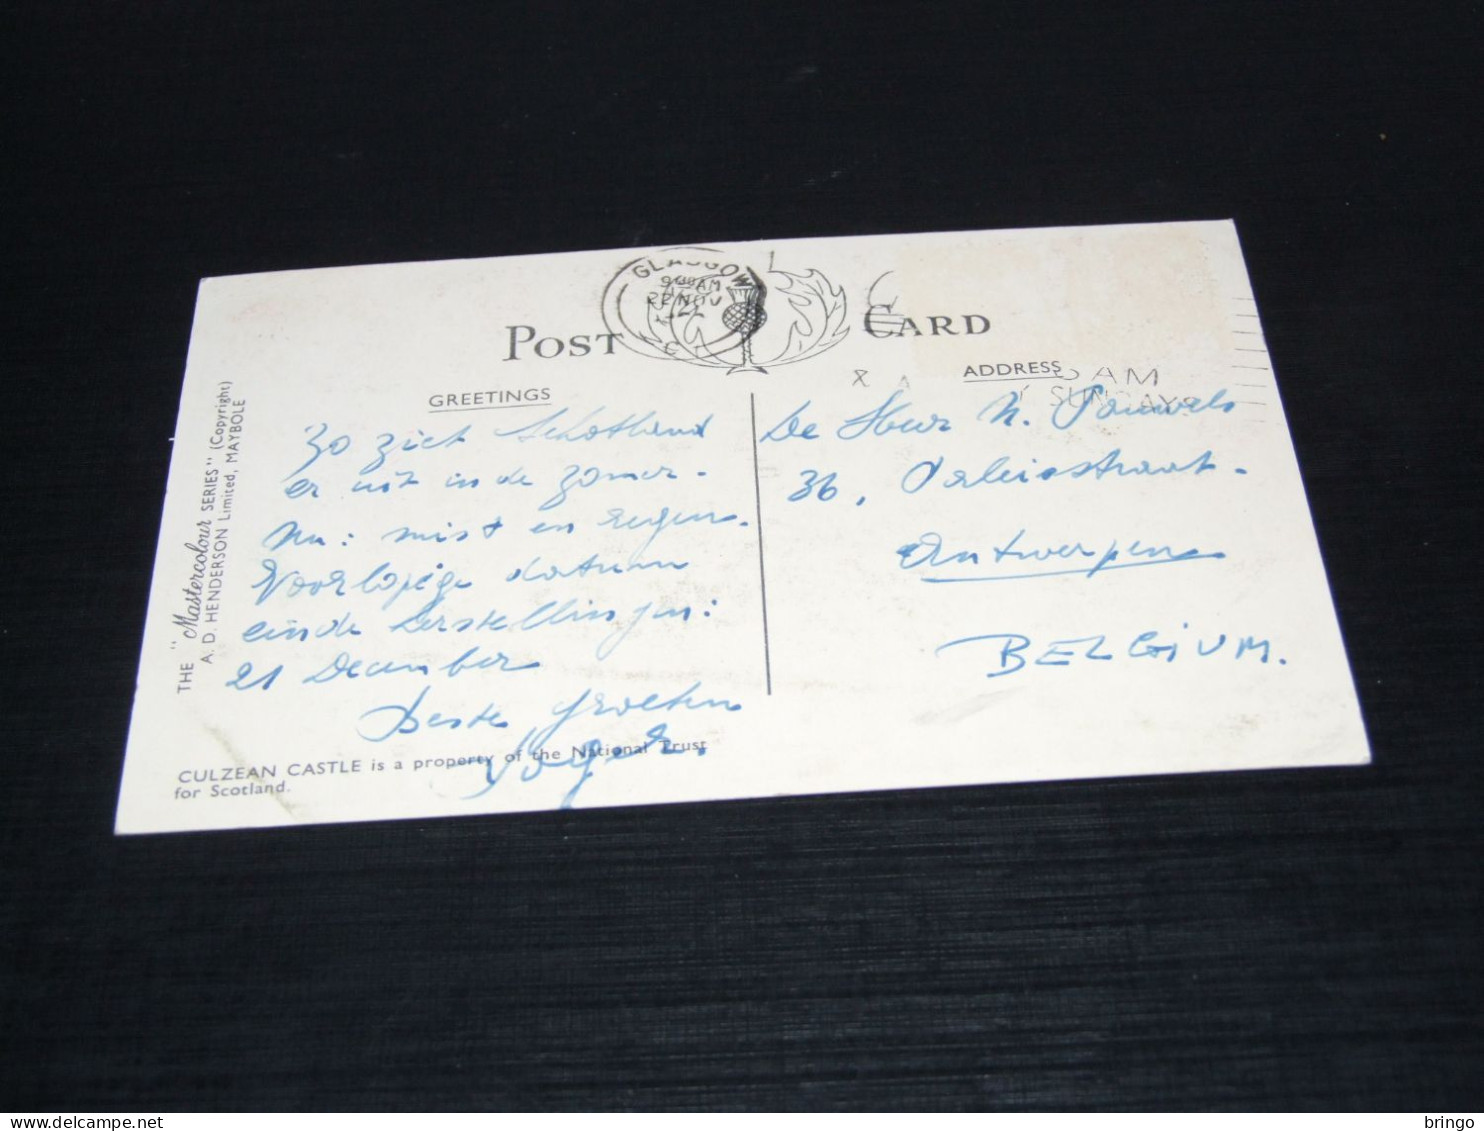 GLASGOW
9 AM
22 NOV
POST CARD
GREETINGS
ADDRESS
AM
SUNDAYS
THE "Mastercolour SERIES" (Copyright)
A. D. HENDERSON Limited, MAYBOLE
Zo ziet Schotland
er uit in de zomer.
Nu: mist en regen.
Voorlopige datum
einde herstellingen:
21 December
Beste groeten
De Heer M. Pauwels
36,
Antwerpen
BELGIUM.
CULZEAN CASTLE is a property of the National Trust
for Scotland.
www.delcampe.net
bringo